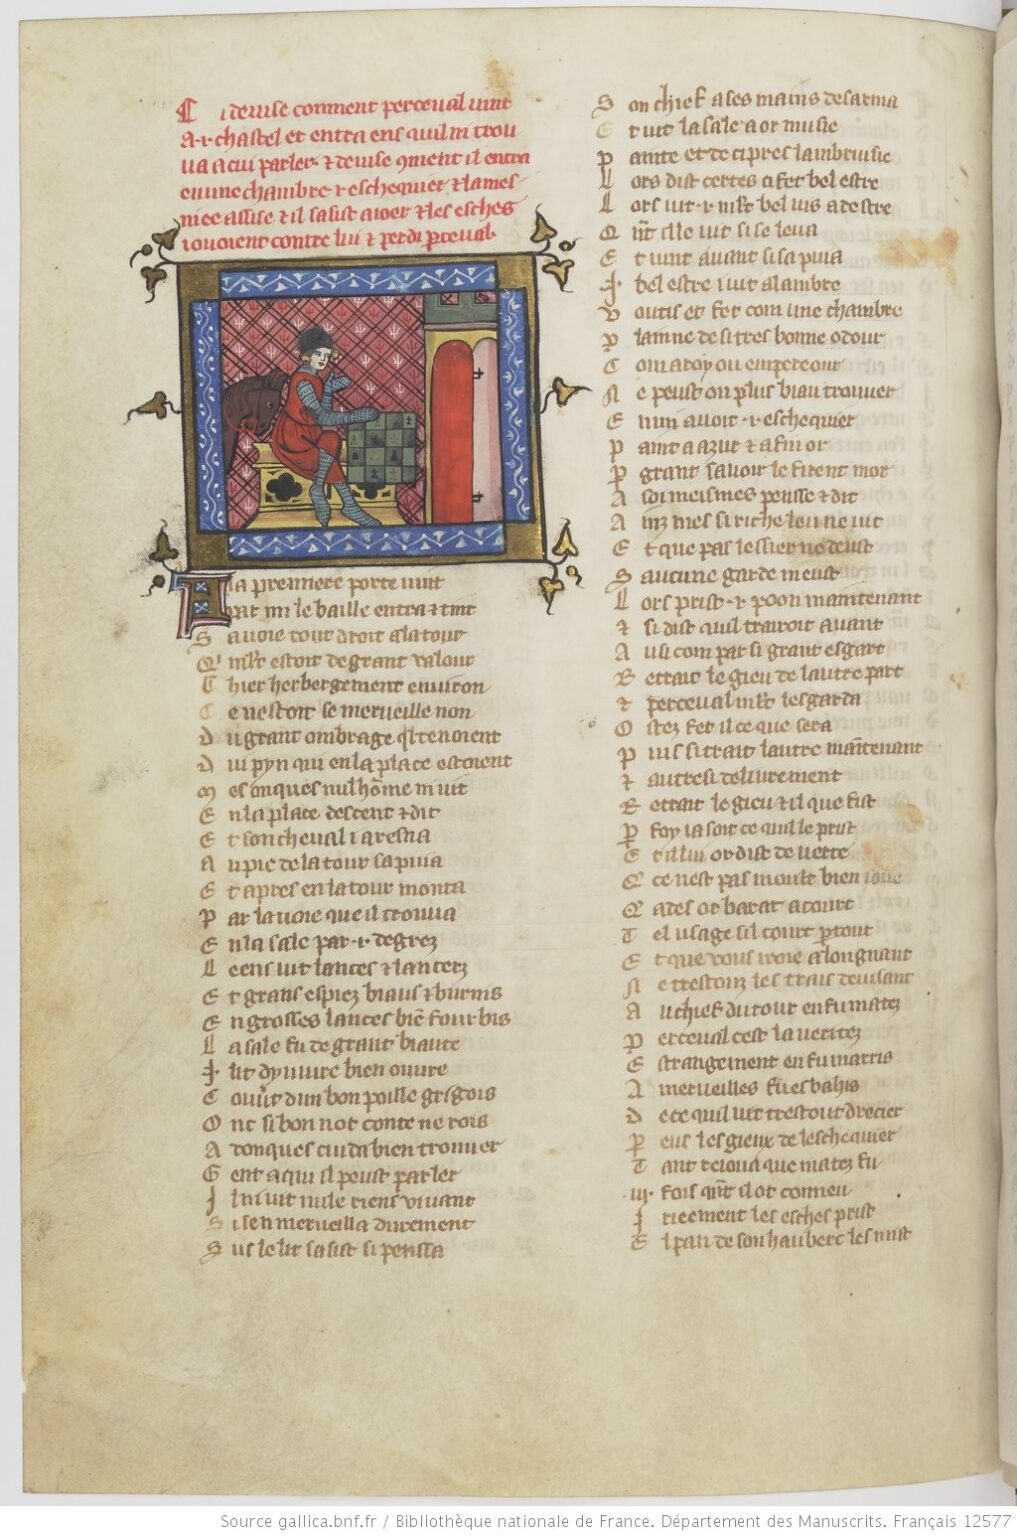 Ci deuise coment perceual uint
a .i. chastel et entra ens quil ni trou
ua a cui parler. ⁊ deuise 9ment il entra
en une chambre ⁊ eschequier ⁊ la mes
mee assise ⁊ il sasist a ioer ⁊ les esches
iouoient contre lui ⁊ perdi pceual.
A la premiere porte uint
Par mi le baille entra ⁊ tint
Sa uoie tout droit a la tour
Qi mlt estoit de grant ualour
Chier herbergement enuiron
Ce nestoit se merueille non
Du grant ombrage ql tenoient
Du pyn qui en la place estoient
Mes onques nul home ni uit
En la place descent ⁊ dit
Et son cheual i aresna
Au pie de la tour sapuia
Et apres en la tour monta
Par la uoie que il trouua
En la sale par .i. degrez
Leens uit lances ⁊ lanciers
Et grans espiez biaus ⁊ burnis
En grosses lances bie fourbis
La sale fu de grant biaute
.I. lit dyuuire bien ouure
Couuert dun bon poille grisgois
Onc si bon not conte ne rois
Adonques cuida bien trouuer
Gent a qui il peust parler
Il ni uit nule riens uiuant
Si sen merueilla durement
Sus le lit sasist si penssa
Son chief a ses mains desarma
Et uit la sale a or musie
Painte et de cipres lambruisie
Lors dist certes ci fet bel estre
Lors uit .i. mlt bel uis a destre
Qnt elle uit si se leua
Et uint auant si sapuia
.I. bel estre i uit a lambre
Voutis et fet com une chambre
Plainne de si tres bonne odour
Com a roy ou empereour
Ne peust on plus biau trouuer
Enmi auoit .i. eschequier
Paint a azur ⁊ a fin or
P grant sauoir le firent mor
A soi meismes pensse ⁊ dit
Ainz mes si riche leu ne uit
Et que pas lessier ne deust
Saucune garde ni eust
Lors prist .i. poon maintenant
⁊ si dist quil trairoit auant
Ausi com par si grant esgart
Retrait le gieu de lautre part
⁊ perceual mlt les garda
Ostez fet il ce que sera
Puis si trait lautre maintenant
⁊ autresi deliurement
Retrait le gieu ⁊ il que fist
P foy ia soit ce quil le prist
Et il lui or dist de uerte
Q ce nest pas moult bien ioue
Q ades or barat acourt
Tel usage sil court ptout
Et que uous iroie alongnant
Ne trestouz les trais deuisant
Au chief du tour en fu matez
Perceual cest la ueritez
Estrangement en fu marris
A merueilles fu esbahis
De ce quil uit trestout drecier
P eus les gieux de leschequier
Tant reioua que matez fu
.iij. fois qnt il ot conneu
Irieement les esches prist
El pan de son hauberc les mist
Source gallica.bnf.fr / Bibliothèque nationale de France. Département des Manuscrits. Français 12577